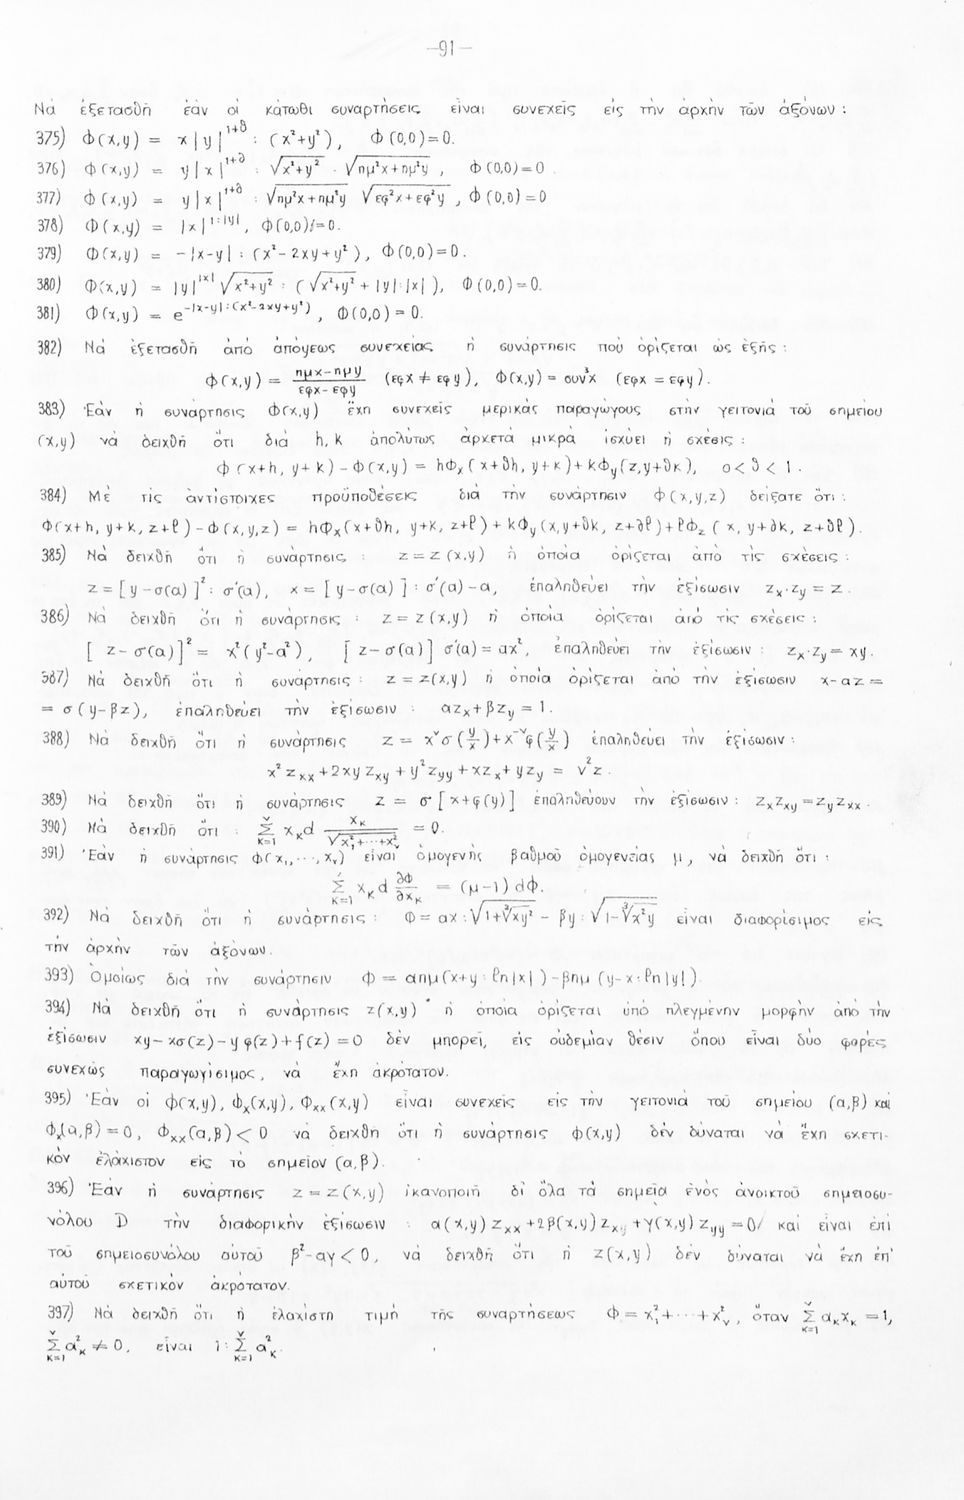 -91-
Νά ἐξετασθῆ ἐάν οἱ κάτωθι συναρτήσεις εἶναι συνεχεῖς εἰς τήν ἀρχήν τῶν ἀξόνων :
375) Φ(x,y) = x|y|^{1+θ} : (x²+y²), Φ(0,0)=0.
376) Φ(x,y) = y|x|^{1+θ} : √(x²+y²) · √(ημ²x+ημ²y) , Φ(0,0)=0.
377) Φ(x,y) = y|x|^{1+θ} : √(ημ²x+ημ²y) √(εφ²x+εφ²y) , Φ(0,0)=0
378) Φ(x,y) = |x|^{1:|y|}, Φ(0,0)=0.
379) Φ(x,y) = -|x-y| : (x²-2xy+y²), Φ(0,0)=0.
380) Φ(x,y) = |y|^{|x|} √(x²+y²) : (√(x²+y²) + |y|·|x|), Φ(0,0)=0.
381) Φ(x,y) = e^{-|x-y|:(x²-2xy+y²)} , Φ(0,0)=0.
382) Νά ἐξετασθῆ ἀπό ἀπόψεως συνεχείας ἡ συνάρτησις πού ὁρίζεται ὡς ἑξῆς :
Φ(x,y) = (ημx-ημy)/(εφx-εφy) (εφx ≠ εφy), Φ(x,y) = συν³x (εφx = εφy).
383) Ἐάν ἡ συνάρτησις Φ(x,y) ἔχη συνεχεῖς μερικάς παραγώγους στήν γειτονιά τοῦ σημείου
(x,y) νά δειχθῆ ὅτι διά h, k ἀπολύτως ἀρκετά μικρά ἰσχύει ἡ σχέσις :
Φ(x+h, y+k) - Φ(x,y) = hΦ_x(x+θh, y+k) + kΦ_y(x,y+θk), 0<θ<1.
384) Μέ τίς ἀντίστοιχες προϋποθέσεις διά τήν συνάρτησιν Φ(x,y,z) δείξατε ὅτι :
Φ(x+h, y+k, z+ℓ) - Φ(x,y,z) = hΦ_x(x+θh, y+k, z+ℓ) + kΦ_y(x,y+θk, z+θℓ) + ℓΦ_z(x, y+θk, z+θℓ).
385) Νά δειχθῆ ὅτι ἡ συνάρτησις : z=z(x,y) ἡ ὁποία ὁρίζεται ἀπό τίς σχέσεις :
z = [y-σ(α)]² : σ'(α), x = [y-σ(α)] : σ'(α)-α, ἐπαληθεύει τήν ἐξίσωσιν z_x·z_y = z.
386) Νά δειχθῆ ὅτι ἡ συνάρτησις : z = z(x,y) ἡ ὁποία ὁρίζεται ἀπό τίς σχέσεις :
[z-σ(α)]² = x²(y²-α²), [z-σ(α)] σ'(α) = αx², ἐπαληθεύει τήν ἐξίσωσιν : z_x·z_y = xy.
387) Νά δειχθῆ ὅτι ἡ συνάρτησις : z = z(x,y) ἡ ὁποία ὁρίζεται ἀπό τήν ἐξίσωσιν x-αz =
= σ(y-βz), ἐπαληθεύει τήν ἐξίσωσιν : αz_x+βz_y = 1.
388) Νά δειχθῆ ὅτι ἡ συνάρτησις z = x^ν σ(y/x) + x^{-ν} φ(y/x) ἐπαληθεύει τήν ἐξίσωσιν :
x² z_xx + 2xy z_xy + y² z_yy + xz_x + yz_y = ν²z.
389) Νά δειχθῆ ὅτι ἡ συνάρτησις z = σ[x+φ(y)] ἐπαληθεύουν τήν ἐξίσωσιν : z_x z_xy = z_y z_xx.
390) Νά δειχθῆ ὅτι : Σ_{κ=1}^{ν} x_κ d x_κ/√(x₁²+···+x_ν²) = 0.
391) Ἐάν ἡ συνάρτησις Φ(x₁,···,x_ν) εἶναι ὁμογενής βαθμοῦ ὁμογενείας μ, νά δειχθῆ ὅτι :
Σ_{κ=1}^{ν} x_κ d ∂Φ/∂x_κ = (μ-1) dΦ.
392) Νά δειχθῆ ὅτι ἡ συνάρτησις : Φ = αx : √(1+∛(xy²)) - βy : √(1-∛(x²y)) εἶναι διαφορίσιμος εἰς
τήν ἀρχήν τῶν ἀξόνων.
393) Ὁμοίως διά τήν συνάρτησιν Φ = αημ(x+y·ℓn|x|) - βημ(y-x·ℓn|y|).
394) Νά δειχθῆ ὅτι ἡ συνάρτησις z(x,y) ἡ ὁποία ὁρίζεται ὑπό πλεγμένην μορφήν ἀπό τήν
ἐξίσωσιν xy-xσ(z)-yφ(z)+f(z)=0 δέν μπορεῖ, εἰς οὐδεμίαν θέσιν ὅπου εἶναι δύο φορές
συνεχῶς παραγωγίσιμος, νά ἔχη ἀκρότατον.
395) Ἐάν οἱ Φ(x,y), Φ_x(x,y), Φ_xx(x,y) εἶναι συνεχεῖς εἰς τήν γειτονιά τοῦ σημείου (α,β) καί
Φ_x(α,β)=0, Φ_xx(α,β)<0 νά δειχθῆ ὅτι ἡ συνάρτησις Φ(x,y) δέν δύναται νά ἔχη σχετι-
κόν ἐλάχιστον εἰς τό σημεῖον (α,β).
396) Ἐάν ἡ συνάρτησις z = z(x,y) ἱκανοποιῆ δι' ὅλα τά σημεῖα ἑνός ἀνοικτοῦ σημειοσυ-
νόλου D τήν διαφορικήν ἐξίσωσιν : α(x,y)z_xx+2β(x,y)z_xy+γ(x,y)z_yy=0/ καί εἶναι ἐπί
τοῦ σημειοσυνόλου αὐτοῦ β²-αγ<0, νά δειχθῆ ὅτι ἡ z(x,y) δέν δύναται νά ἔχη ἐπ'
αὐτοῦ σχετικόν ἀκρότατον.
397) Νά δειχθῆ ὅτι ἡ ἐλαχίστη τιμή τῆς συναρτήσεως Φ = x₁²+···+x_ν², ὅταν Σ_{κ=1}^{ν} α_κx_κ = 1,
Σ_{κ=1}^{ν} α_κ² ≠ 0, εἶναι 1 : Σ_{κ=1}^{ν} α_κ².